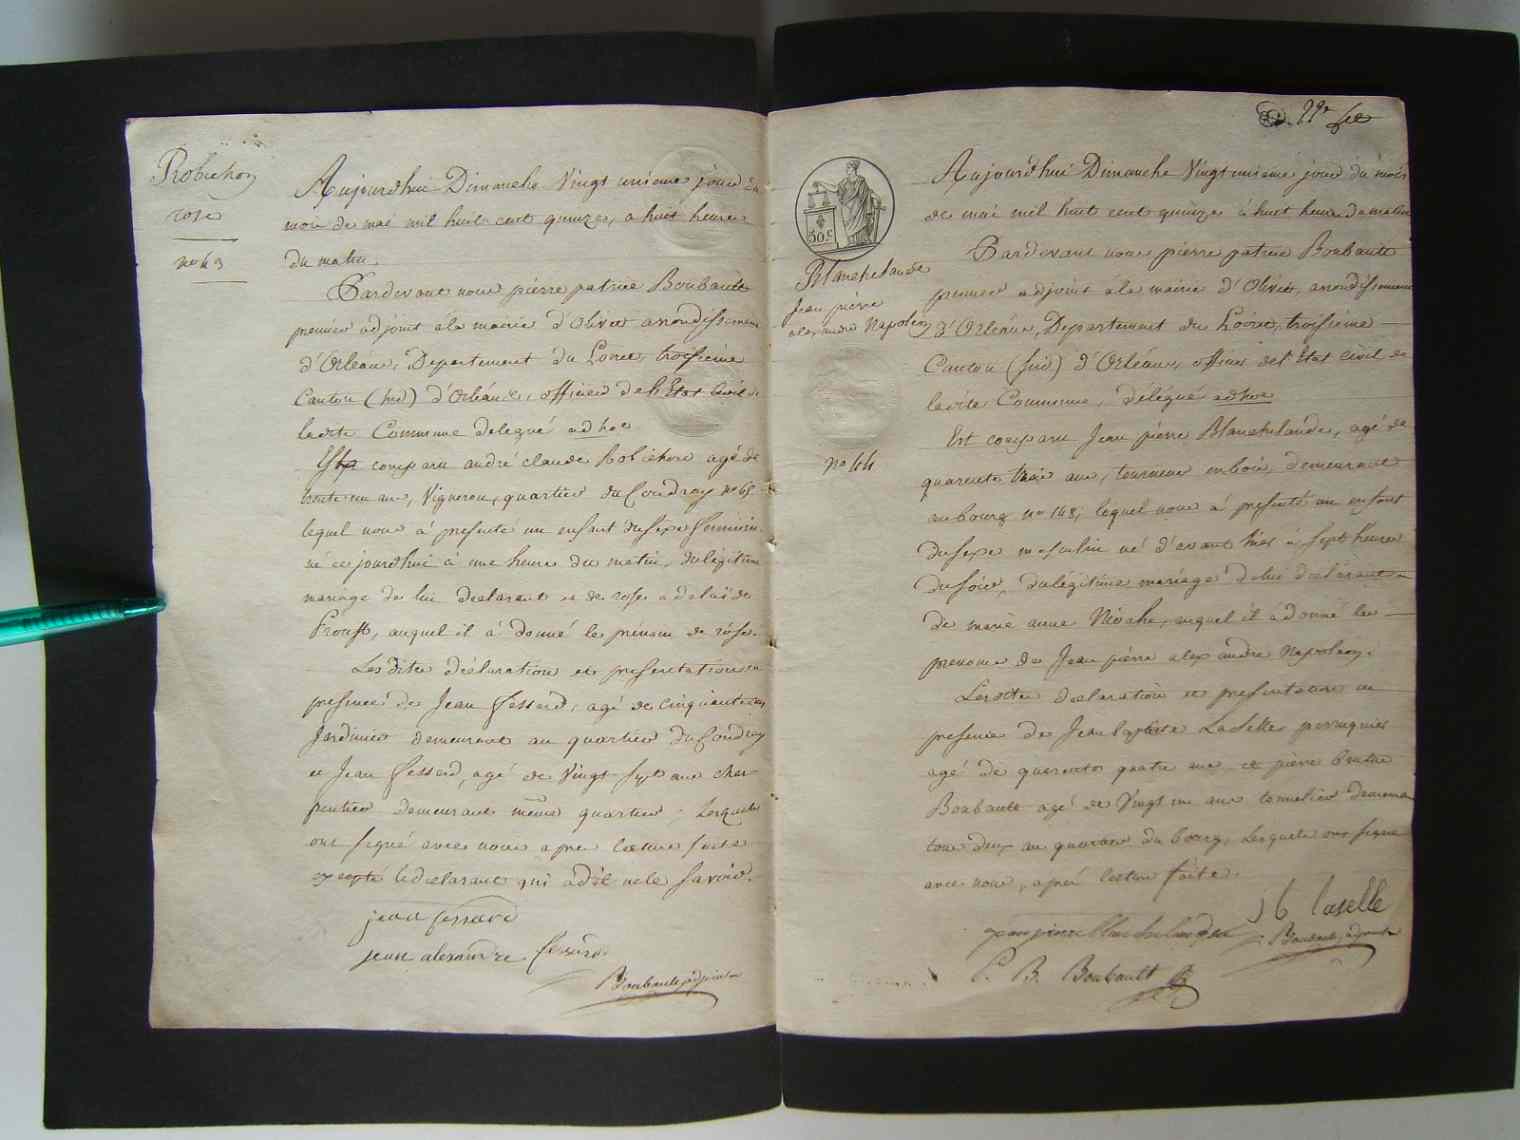 Robichon
rose
no 43
Aujourdhui Dimanche Vingt unieme jour du
mois de mai mil huit cent quinze, a huit heures
du matin.
Pardevant nous pierre patrice Boubault
premier adjoint à la mairie d'Olivet arrondissement
d'Orléans, Departement du Loiret, troisieme
Canton (sud) d'Orléans, officier de l'Etat Civil de
ladite Commune delegué ad hoc
Est comparu andré claude Robichon agé de
trente un ans, Vigneron, quartier du Coudray no 65
lequel nous à presenté un enfant du sexe feminin
né ce jourdhui à une heure du matin, du légitime
mariage de lui declarant et de rose adelaïde
Proust, auquel il à donné le prénom de rose.
Lesdites déclaration et presentation en
presence de Jean fessard, agé de cinquante ans
Jardinier demeurant au quartier du Coudray
et Jean fessard, agé de Vingt sept ans char
pentier demeurant même quartier, Lesquels
ont signé avec nous apres lecture faite
excepté le declarant qui à dit ne le savoir.
jean fessard
jean alexandre fessard
Boubault adjoint
22e
30 c
Blanchelande
Jean pierre
alexandre Napoleon
no 44
Aujourdhui Dimanche Vingt unieme jour du mois
de mai mil huit cent quinze à huit heures du matin
Pardevant nous pierre patrice Boubault
premier adjoint à la mairie d'Olivet, arrondissement
d'Orléans, Departement du Loiret, troisieme
Canton (sud) d'Orléans, officier de l'Etat Civil de
ladite Commune, délégué ad hoc
Est comparu Jean pierre Blanchelande, agé de
quarente trois ans, tourneur en bois, demeurant
au bourg no 148, lequel nous à presenté un enfant
du sexe masculin né d'avant hier a sept heures
du soir, du légitime mariage de lui déclarant et
de marie anne, auquel il à donné les
prenoms de Jean pierre alexandre Napoleon.
Lesdites declaration et presentation en
presence de Jean baptiste Laselle perruquier
agé de quarente quatre ans et pierre
Boubault agé de Vingt un ans tonnelier demeurant
tous deux au quartier du bourg, Lesquels ont signé
avec nous, après lecture faite.
jean pierre Blanchelande
j b laselle
Boubault adjoint
P. B. Boubault